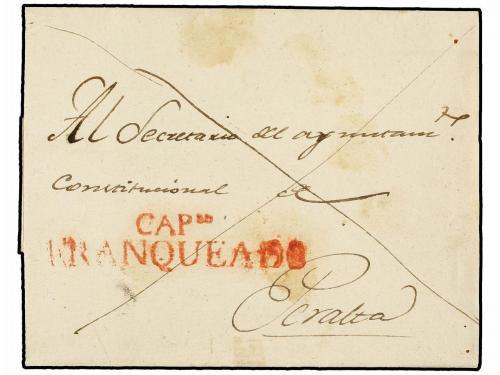 Al Secretario del ayuntam.to
Constitucional de
CAPns
FRANQUEADO
Peralta